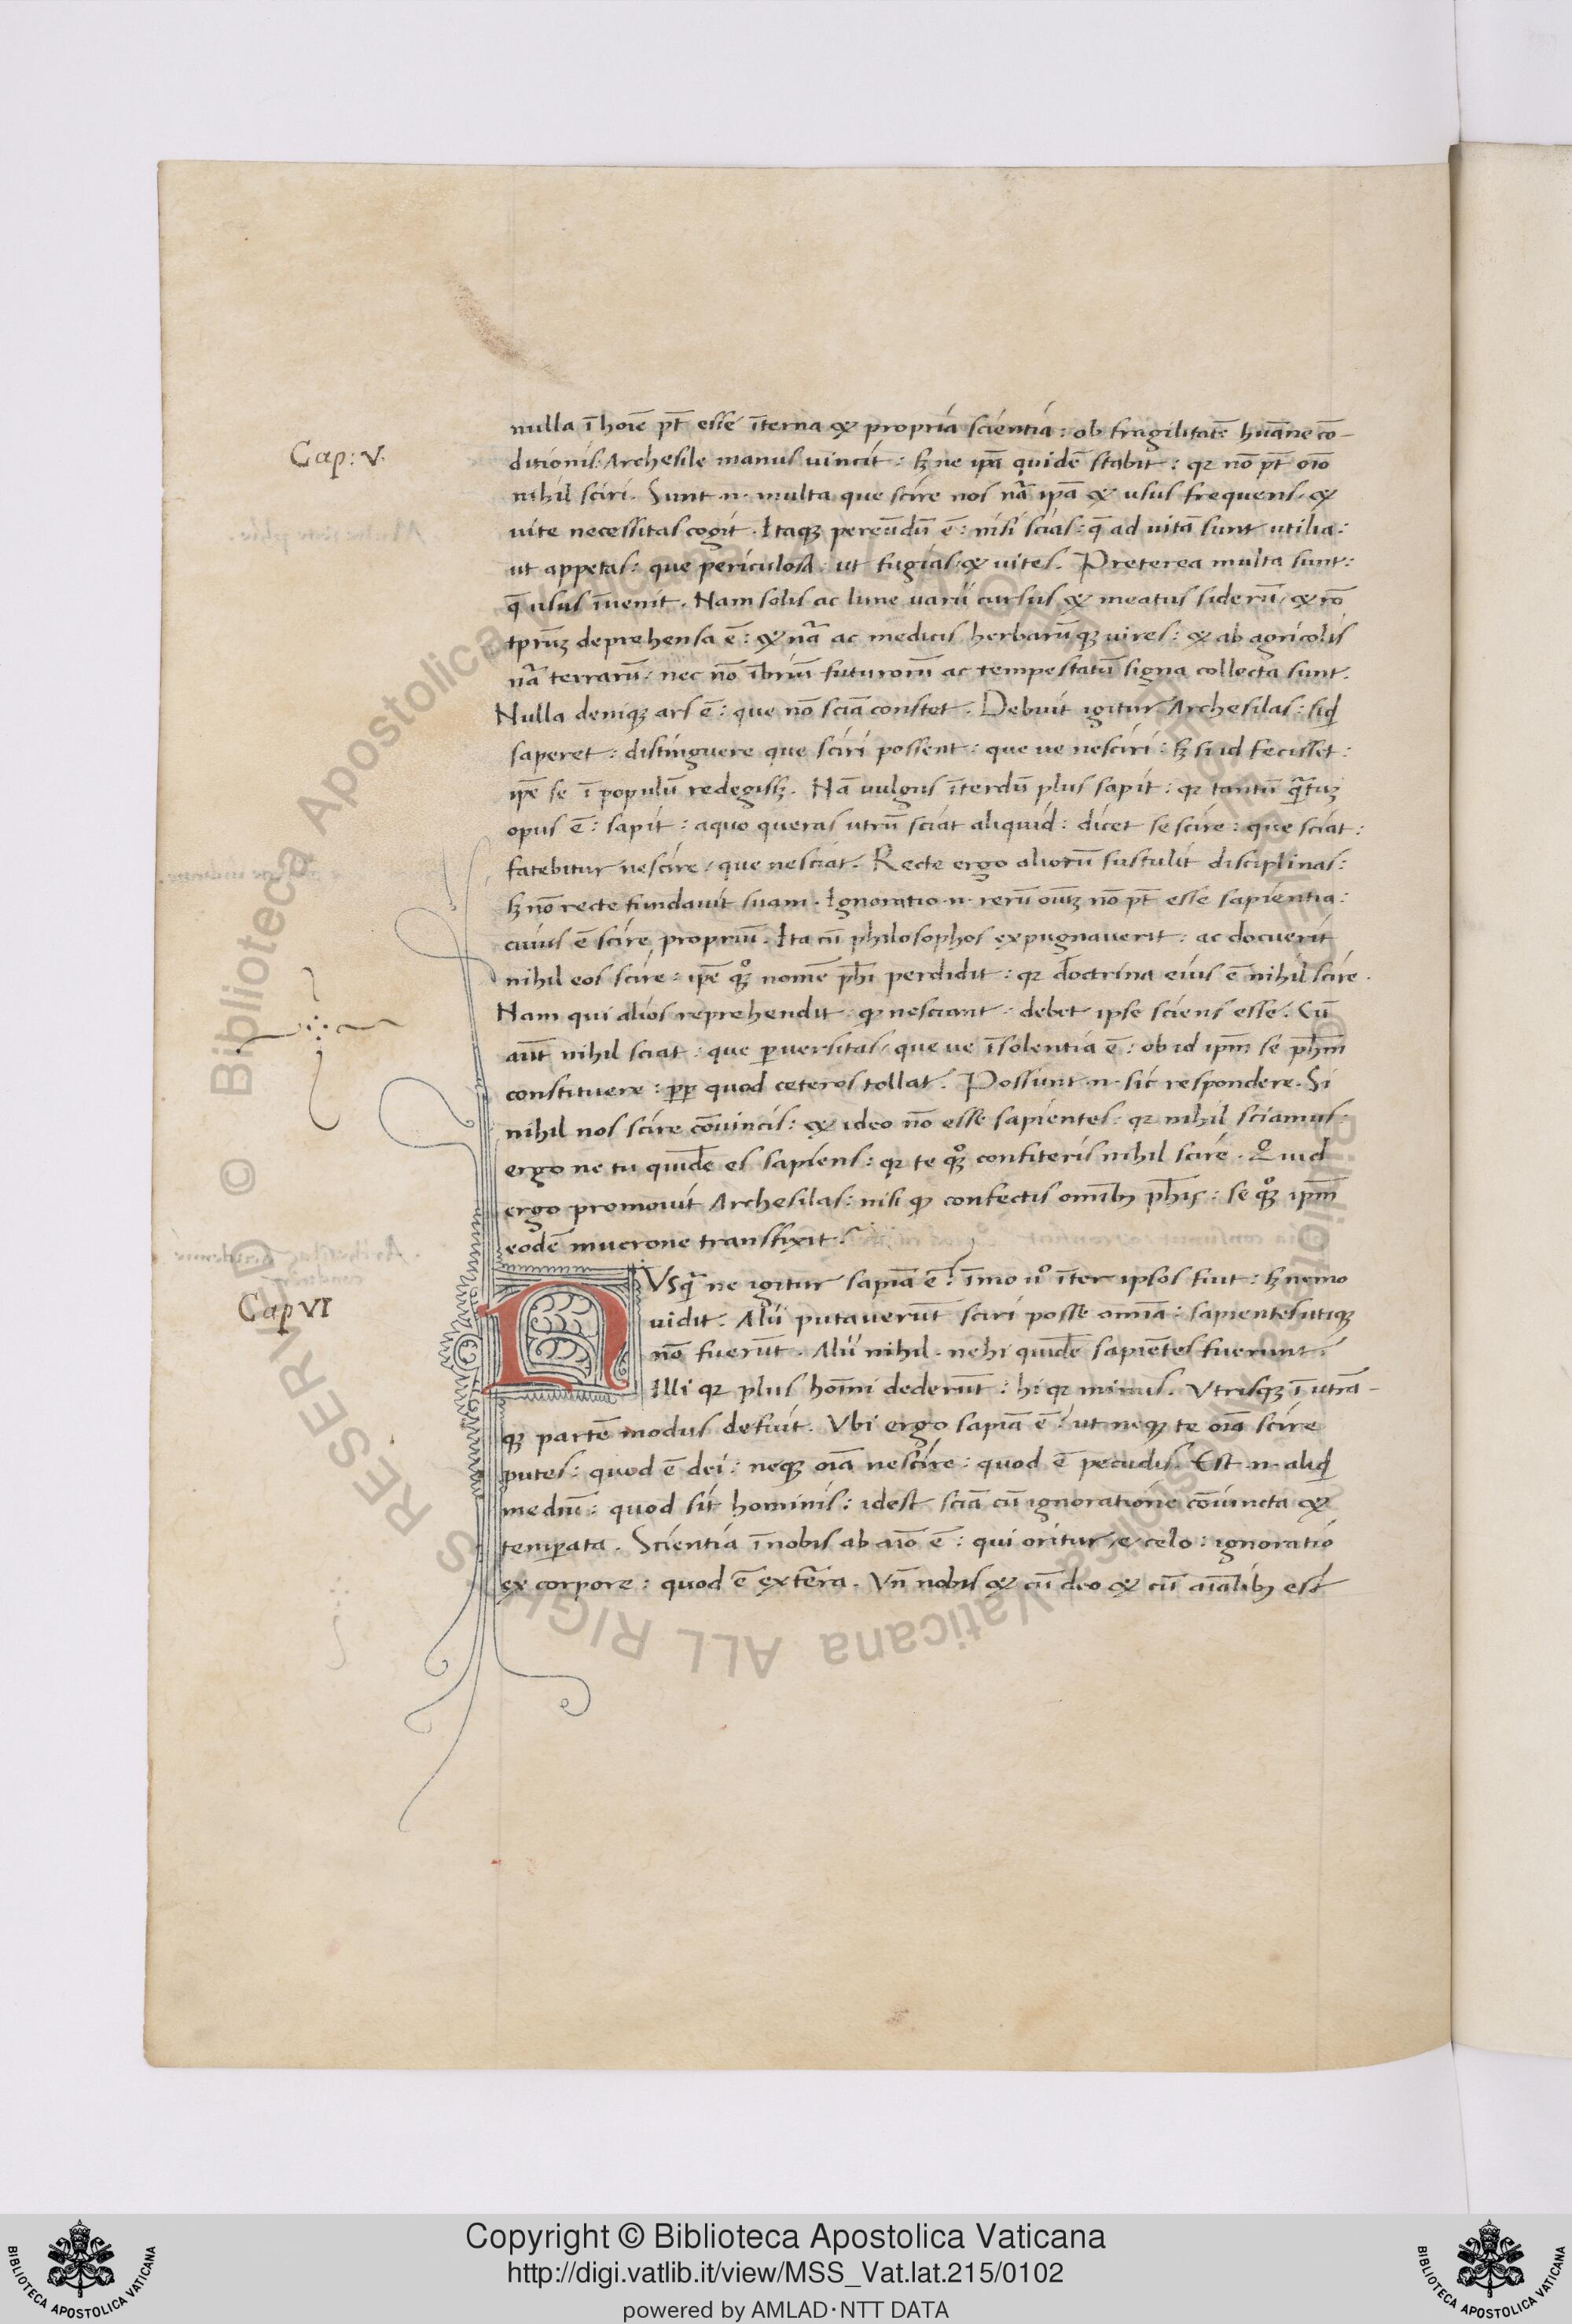 Cap: V.
nulla ī hoīe pt̄ esse īterna & propria scientia: ob fragilitatē huāne cō-
ditionis: Archesile manus vincit: sꝫ ne ip̄a quidē stabit: qꝛ nō pt̄ oīo
nihil sciri. Sunt .n. multa que scire nos nā̄ ip̄a & usus frequens, &
vite necessitas cogit. Itaqꝫ pereūdū ē: nisi scias: q̄ ad vitā sunt utilia:
ut appetas: que periculosa: ut fugias: & vites. Preterea multa sunt:
q̄ usus īvenit. Nam solis ac lune varii cursus & meatus siderū, & rō
tprūꝫ deprehensa ē: & nā̄ ac medicis herbarūqꝫ vires: & ab agricolis
nā̄ terrarū, nec nō ībriū futurorū ac tempestatū signa collecta sunt.
Nulla deniqꝫ ars ē: que nō sciā constet. Debuit igitur Archesilas: siqd̄
saperet: distinguere que sciri possent: que ve nesciri: sꝫ si id fecisset:
ip̄e se ī populū redegissꝫ. Nā vulgus īterdū plus sapit: qꝛ tantū q̄tuꝫ
opus ē: sapit: a quo queras utrū sciat aliquid: dicet se scire: que sciat:
fatebitur nescire, que nesciat. Recte ergo aliorū sustulit disciplinas:
sꝫ nō recte fundavit suam. Ignoratio .n. rerū oiūꝫ nō pt̄ esse sapientia:
cuius ē scire propriū. Ita cū philosophos expugnaverit: ac docuerit
nihil eos scire: ip̄e qꝫo nomē ph̄i perdidit: qꝛ doctrina eius ē nihil scire.
Nam qui alios reprehendit: qꝙ nesciant: debet ipse sciens esse. Cū
aūt nihil sciat: que ꝑversitas, que ve īsolentia ē: ob id ip̄m se ph̄m
constituere: ꝓꝑ quod ceteros tollat. Possunt .n. sic respondere. Si
nihil nos scire cōvincis: & ideo nō esse sapientes: qꝛ nihil sciamus:
ergo ne tu quidē es sapiens: qꝛ te qꝫo confiteris nihil scire. Quid
ergo promovit Archesilas: nisi qꝙ confectis omībꝫ ph̄is: se qꝫo ip̄m
eodē mucrone transfixit?
Cap VI
NVSq̄ ne igitur sapīa ē? īmo vo īter ipsos fuit: sꝫ nemo
vidit. Alii putaverūt sciri posse omīa: sapientes utiqꝫ
nō fuerūt. Alii nihil. ne hi quidē sapiētes fuerunt.
Illi qꝛ plus hoīni dederūt: hi qꝛ minus. Vtrisqꝫ ī utrā-
qꝫ partē modus defuit. Vbi ergo sapīa ē? ut neqꝫ te oīa scire
putes: quod ē dei: neqꝫ oīa nescire: quod ē pecudis. Est .n. aliqd̄
mediū: quod sit hominis: idest sciā cū ignoratione cōiuncta &
temꝑata. Scientia ī nobis ab aīo ē: qui oritur e celo: ignoratio
ex corpore: quod ē ex terra. Vn̄ nobis & cū deo & cū aīalibꝫ est
Copyright © Biblioteca Apostolica Vaticana
http://digi.vatlib.it/view/MSS_Vat.lat.215/0102
powered by AMLAD·NTT DATA
BIBLIOTECA APOSTOLICA VATICANA
BIBLIOTECA APOSTOLICA VATICANA